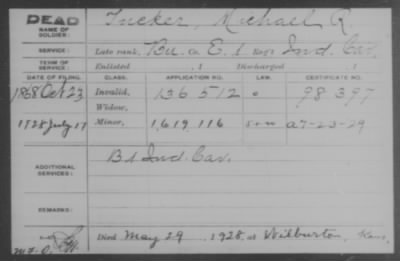 DEAD
NAME OF SOLDIER: Tucker, Michael R.
SERVICE: Late rank, Bu. Co. E, 1 Reg't Ind. Cav.
TERM OF SERVICE: Enlisted , 1 Discharged , 1
DATE OF FILING. CLASS. APPLICATION NO. LAW. CERTIFICATE NO.
1868 Oct 23 Invalid, 136 512 98 397
Widow,
1928 July 17 Minor, 1,619,116 a7-23-29
ADDITIONAL SERVICES: B 1 Ind. Cav.
REMARKS:
Died May 29, 1928, at Wilburton, Kans,